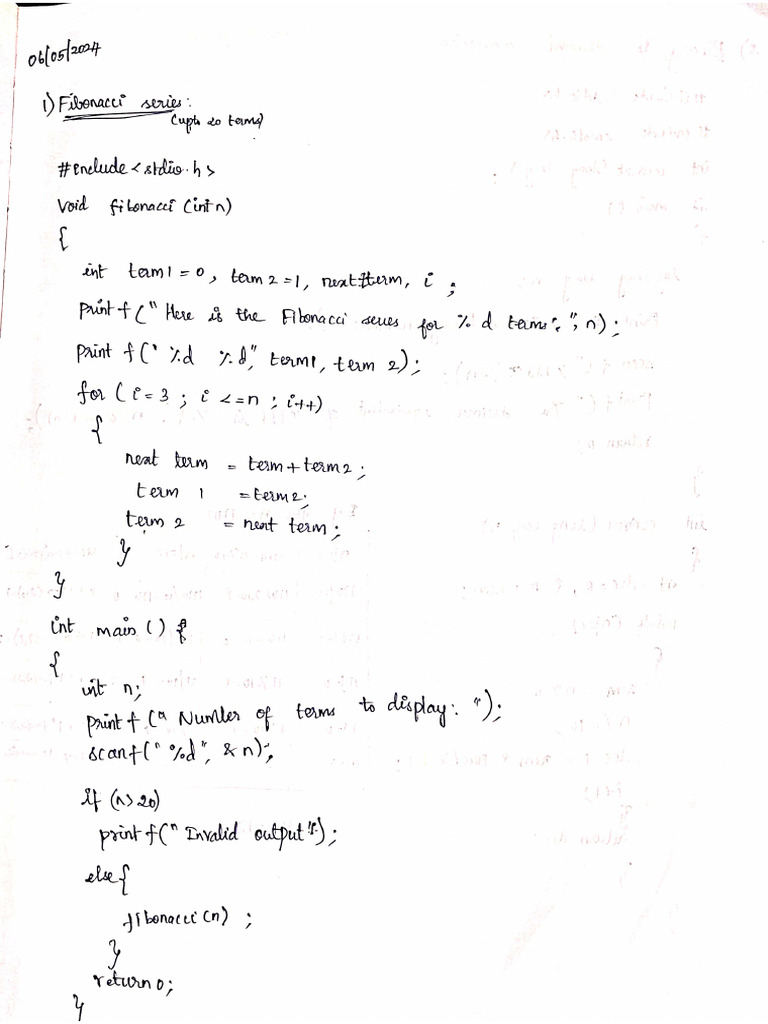 06/05/2024
1) Fibonacci series:
(upto 20 terms)
#include <stdio.h>
void fibonacci (int n)
{
int term1 = 0, term 2 = 1, next term, i ;
printf (" Here is the Fibonacci series for % d terms: ", n) ;
print f (" %d %d", term1, term 2) ;
for ( i = 3 ; i <= n ; i++)
{
next term = term + term 2 ;
term 1 = term 2 ;
term 2 = next term ;
}
}
int main () {
{
int n;
print f (" Number of terms to display: ") ;
scanf (" %d", & n) ;
if (n > 20)
print f (" Invalid output ") ;
else {
fibonacci (n) ;
}
return 0 ;
}